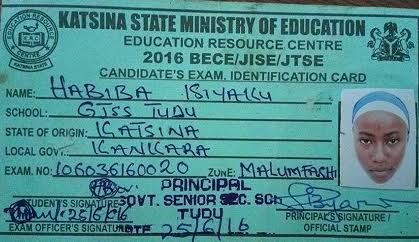 KATSINA STATE MINISTRY OF EDUCATION
EDUCATION RESOURCE CENTRE
2016 BECE/JISE/JTSE
CANDIDATE'S EXAM. IDENTIFICATION CARD
EDUCATION RESOURCE CENTRE
KATSINA STATE
NAME: HABIBA ISIYAKU
SCHOOL: GJSS TUDU
STATE OF ORIGIN: KATSINA
LOCAL GOV.: KANKARA
EXAM. NO: 106036160020 ZONE: MALUMFASHI
PRINCIPAL
STUDENT'S SIGNATURE GOVT. SENIOR SEC. SCH
25/6/16 TUDU PRINCIPAL'S SIGNATURE /
EXAM OFFICER'S SIGNATURE 25/6/16 OFFICIAL STAMP